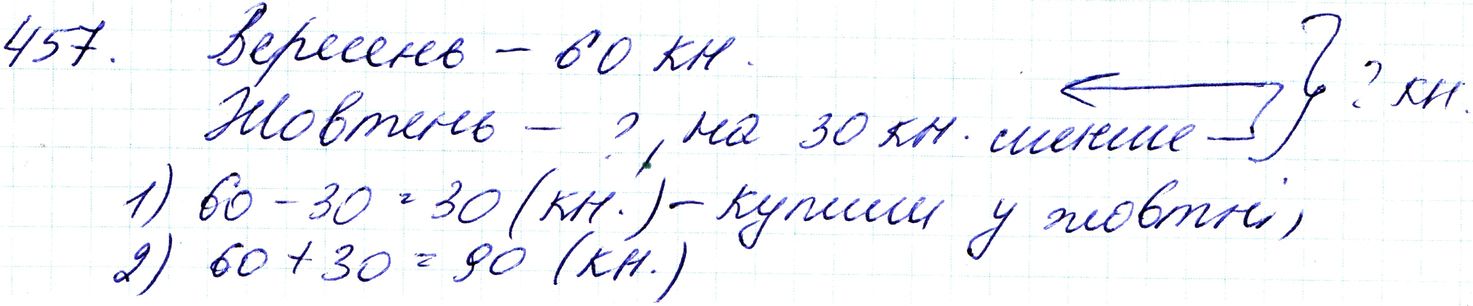 457. Вересень – 60 кн.
Жовтень – ?, на 30 кн. менше } ? кн.
1) 60 – 30 = 30 (кн.) – купили у жовтні,
2) 60 + 30 = 90 (кн.)